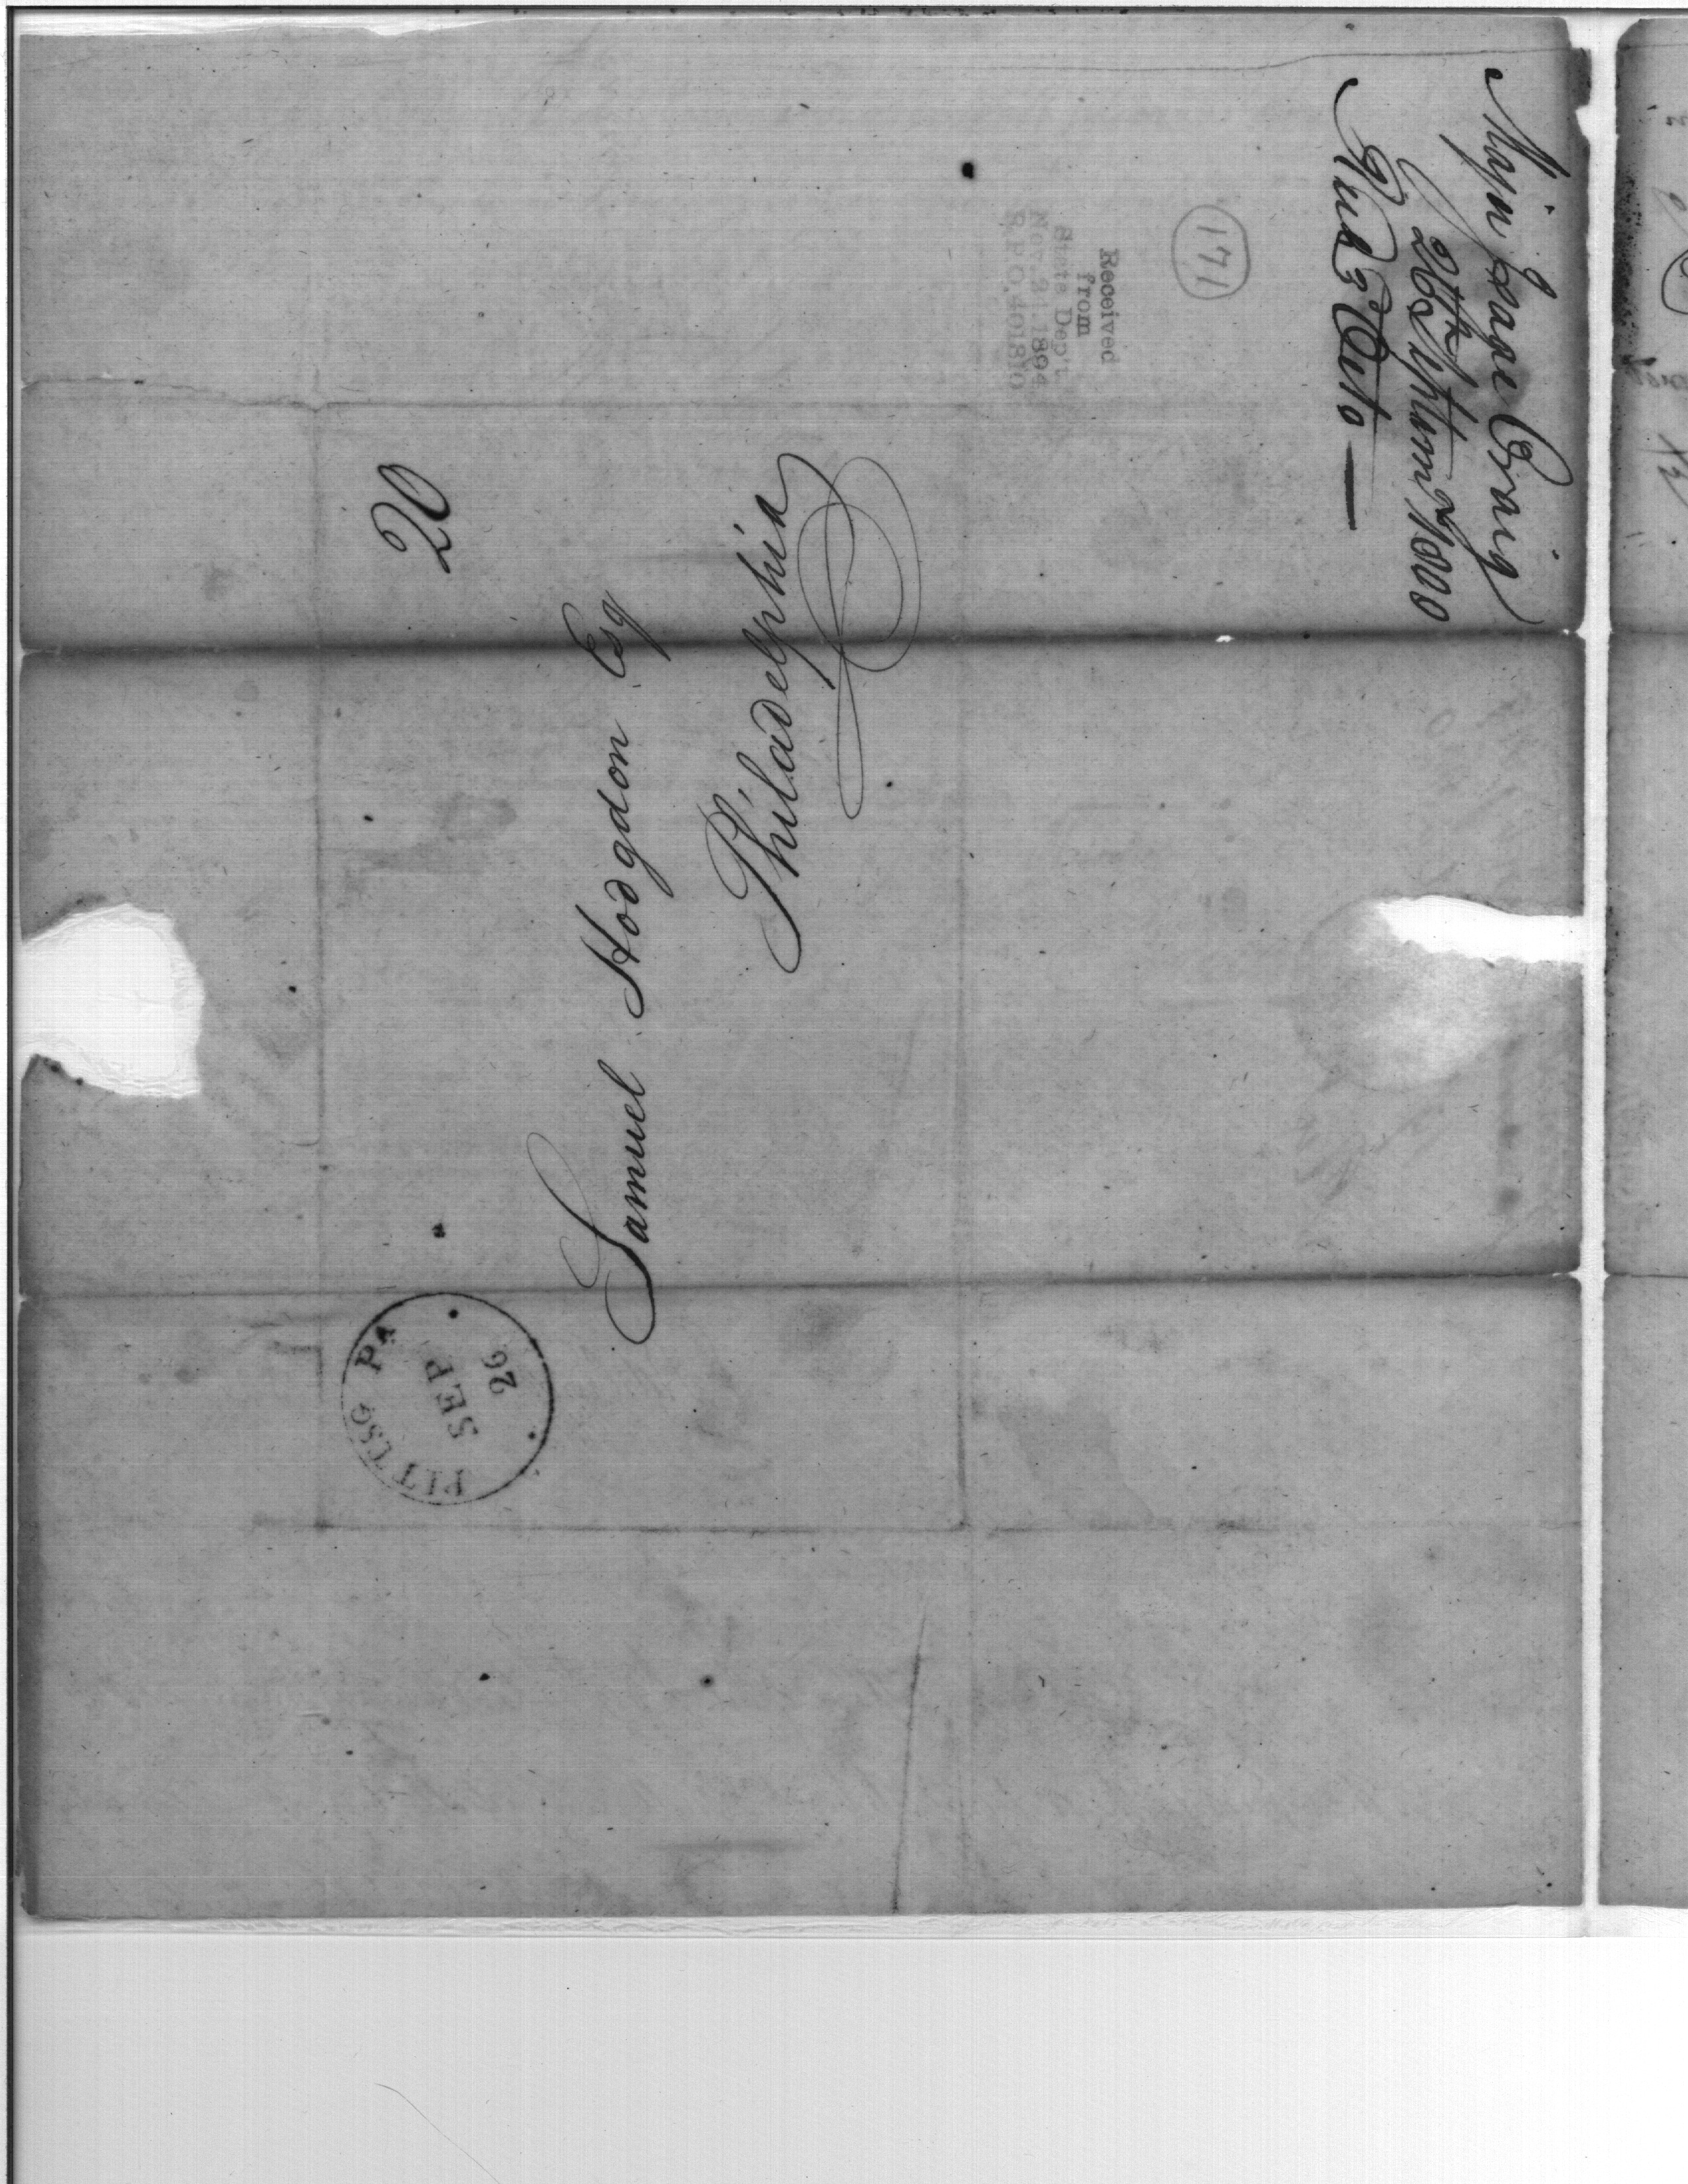 20
Samuel Hodgdon Esq
Philadelphia
PITTSG PA
SEP
26
Major Isaac Craig
26th Septem 1800
Received
from
State Dep't.
Nov. 21. 1894
R.P.O. 401810
171